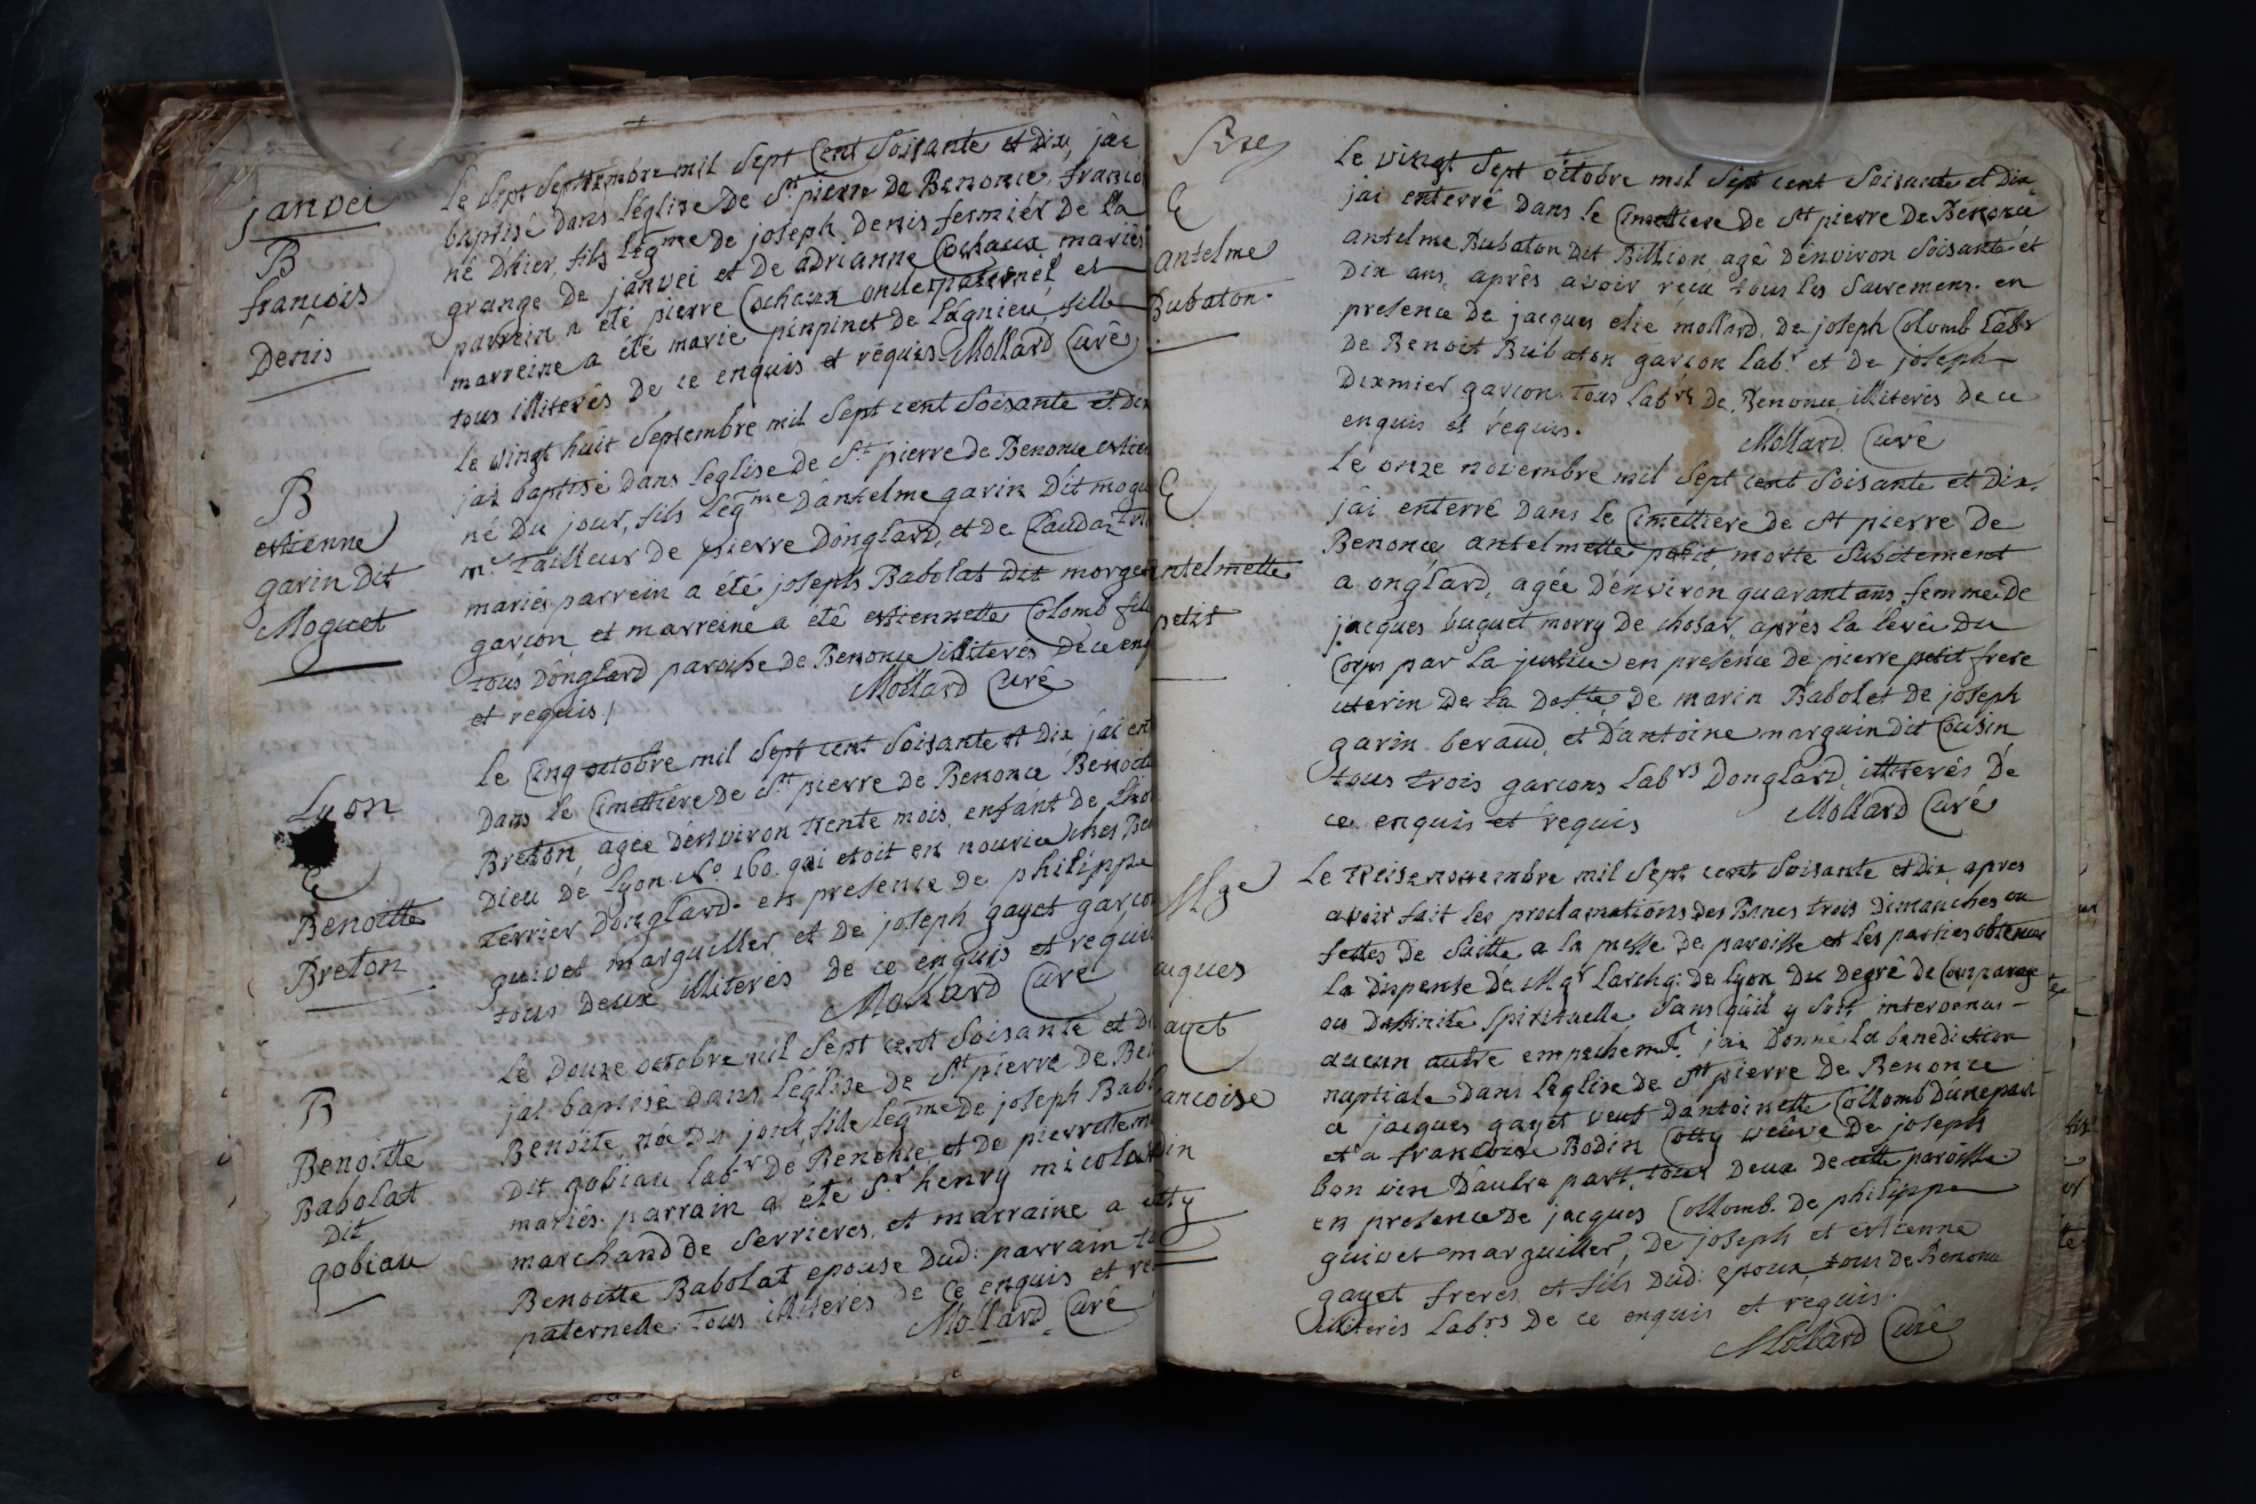 janvei
B
francois
Denis
le sept septembre mil sept cent soisante et dix, jai
baptisé dans léglise de St pierre de Benonce, francoi
né dhier, fils légme de joseph denis fermiér de la
grange de janvei et de adrianne Cochaux mariés
parrein a été pierre Cochaux oncle paternel et
marreine a été marie pinpinet de lagnieu, fille
tous illiterés de ce enquis et réquis. Mollard Curé
B
estienne
garin dit
Moguet
le vingt huit septembre mil sept cent soisante et dix
jai baptisé dans léglise de St pierre de Benonce estien
né du jour, fils légme dantelme garin dit mogu
mr tailleur de pierre dónglard, et de Clauda
mariés parrein a été joseph Babolat dit morge
garcon et marreine a été estiennette Colomb fil
tous dónglard paroisse de Benonce illiterés de ce enq
et requis / Mollard Curé
Lyon
E
Benoitte
Breton
le Cinq octobre mil sept cent soisante et dix jai en
dans le Cimettiére de St pierre de Benonce Benoitt
Breton, agée dénviron trente mois, enfant de lho
dieu de Lyon. No 160. qui etoit en nourice ches Be
terrier donglard. en presence de philippe
guivet marguiller et de joseph gayet garcon
tous deux illiterés de ce enquis et requis
Mollard Curé
B
Benoitte
Babolat
dit
gobiau
le douze octobre mil sept cent soisante et di
jai baptisé dans léglise de St pierre de Ben
Benoite née du jour, fille légme de joseph Babo
dit gobiau labr de Benonce et de pierrette m
mariés. parrain a été Sr henry micol
marchand de serrieres, et marraine a ét
Benoitte Babolat epouse dud: parrain t
paternelle. tous illiterés de ce enquis et re
Mollard Curé
E
antelme
Bubaton.
le vingt sept octobre mil sept cent soisante et dix
jai enterré dans le Cimettiere de St pierre de Benonce
antelme Bubaton dit Billion agé dénviron soisante et
dix ans, aprés avoir recu tous les sacremens. en
presence de jacques elie mollard, de joseph Colomb labr
de Benoit Bubaton garcon labr et de joseph
dixmier garcon. tous labrs de Benonce illiterés de ce
enquis et réquis.
Mollard Curé
E
antelmette
petit
le onze novembre mil sept cent soisante et dix.
jai enterré dans le Cimettiere de St pierre de
Benonce antelmette petit, morte subitement
a onglard, agée dénviron quarant ans femme de
jacques buguet morry de chosas, aprés la levée du
Corps par la justice. en presence de pierre petit frere
uterin de la defte de marin Babolet de joseph
garin beraud, et dantoine marguin dit Cousin
tous trois garcons labrs donglard, illiterés de
ce enquis et requis Mollard Curé
Mge
acques
ayet
ancoise
din
otty
Le treise novembre mil sept cent soisante et dix apres
avoir fait les proclamations des Bancs trois dimanches ou
fettes de suitte a la messe de paroisse et les parties obtenu
la dispense de Mgr larchq: de lyon du degré de Comparage
ou dáffinité spirituelle sans quíl y soit intervenu -
aucun autre empechemt. jai donné la benediction
nuptiale dans léglise de St pierre de Benonce
a jacques gayet veuf dantoinette Collomb dúnepart
et a francoise Bodin Cotty veuve de joseph
bon vin dáutre part, tous deux de cette paroisse.
en presence de jacques Collomb. de philippe
guivet marguiller, de joseph et estienne
gayet freres et fils dud: epoux, tous de Benonce
illiterés labrs de ce enquis et requis.
Mollard Curé